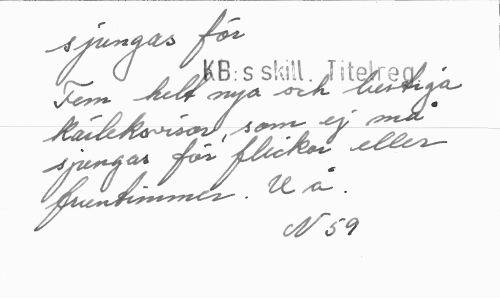 sjungas för
KB:s skill. Titelreg
Fem helt nya och lustiga
kärleksvisor, som ej må
sjungas för flickor eller
fruentimmer. U å.
N 59